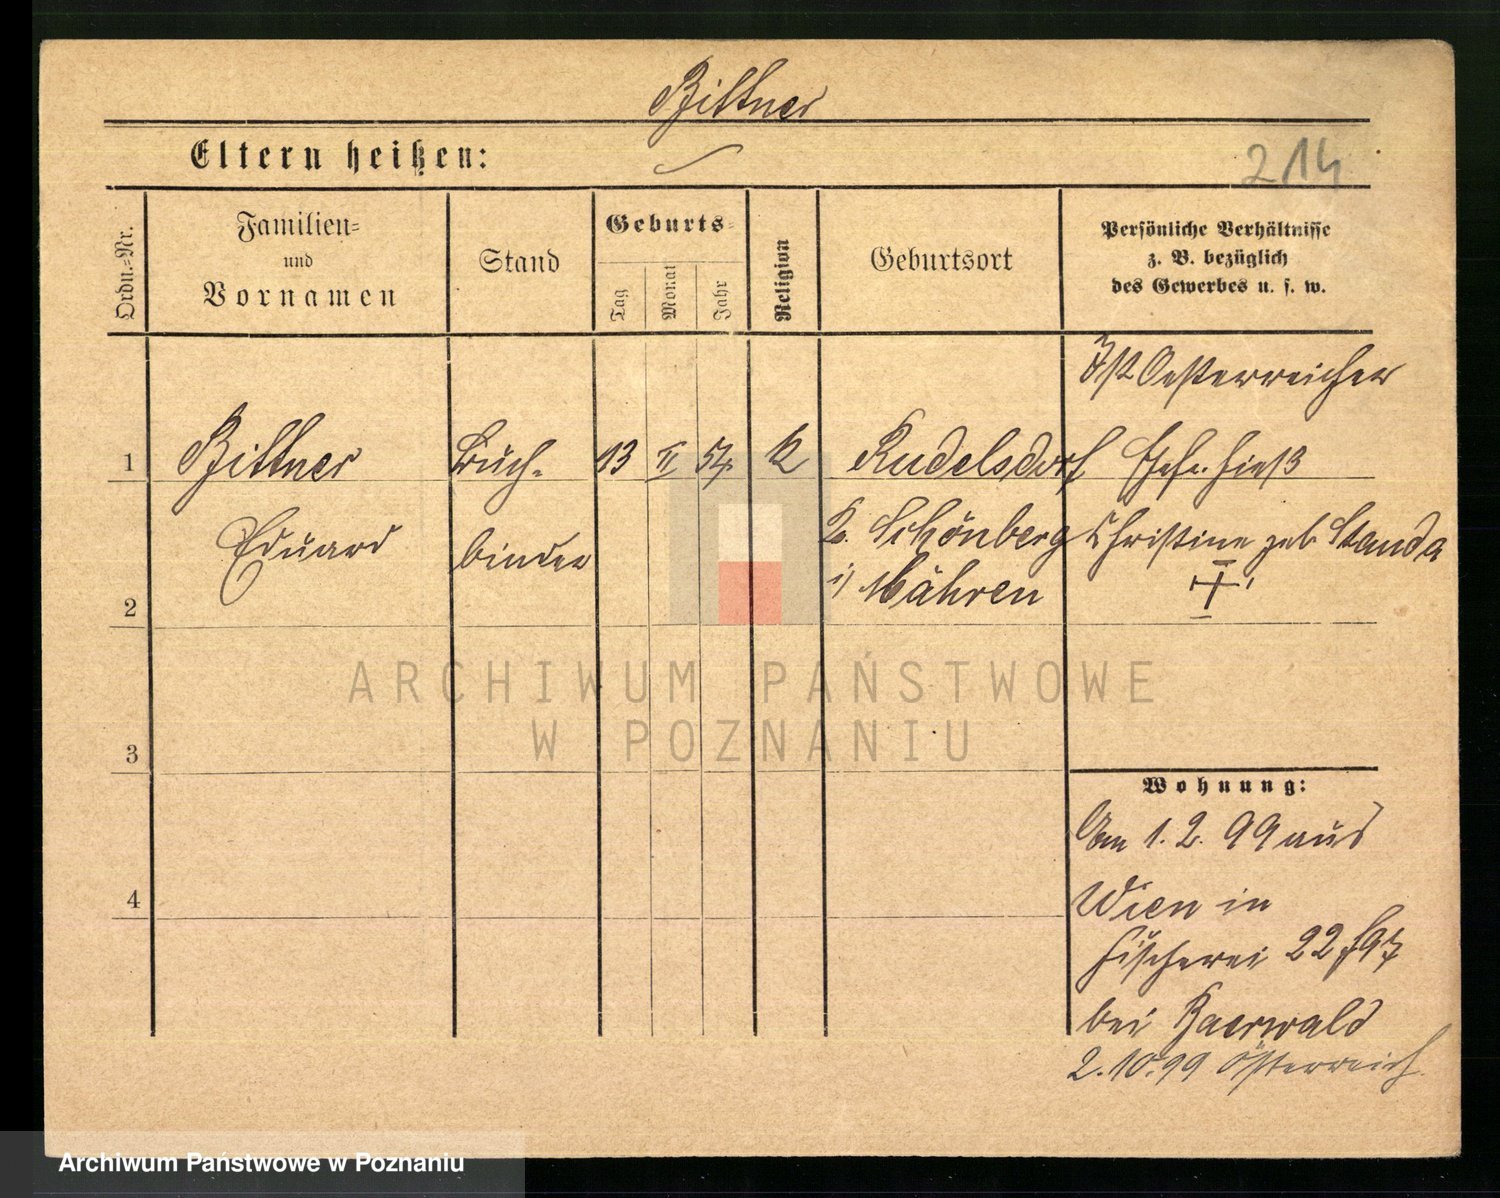 Bittner
Eltern heißen:
214
Ordn.=Nr.
Familien=
und
Vornamen
Stand
Geburts=
Tag
Monat
Jahr
Religion
Geburtsort
Persönliche Verhältnisse
z. B. bezüglich
des Gewerbes u. s. w.
Ist Oesterreicher
1 Bittner Buch- 13 II 54 K Rudelsdorf Ehefr. hieß
Eduard binder K. Schönberg Christine geb Standa
i/ Mähren
2
3
4
Wohnung:
Am 1. 2. 99 aus
Wien in
Fischerei 22
bei Baerwald
2.10.99 Österreich
ARCHIWUM PAŃSTWOWE
W POZNANIU
Archiwum Państwowe w Poznaniu